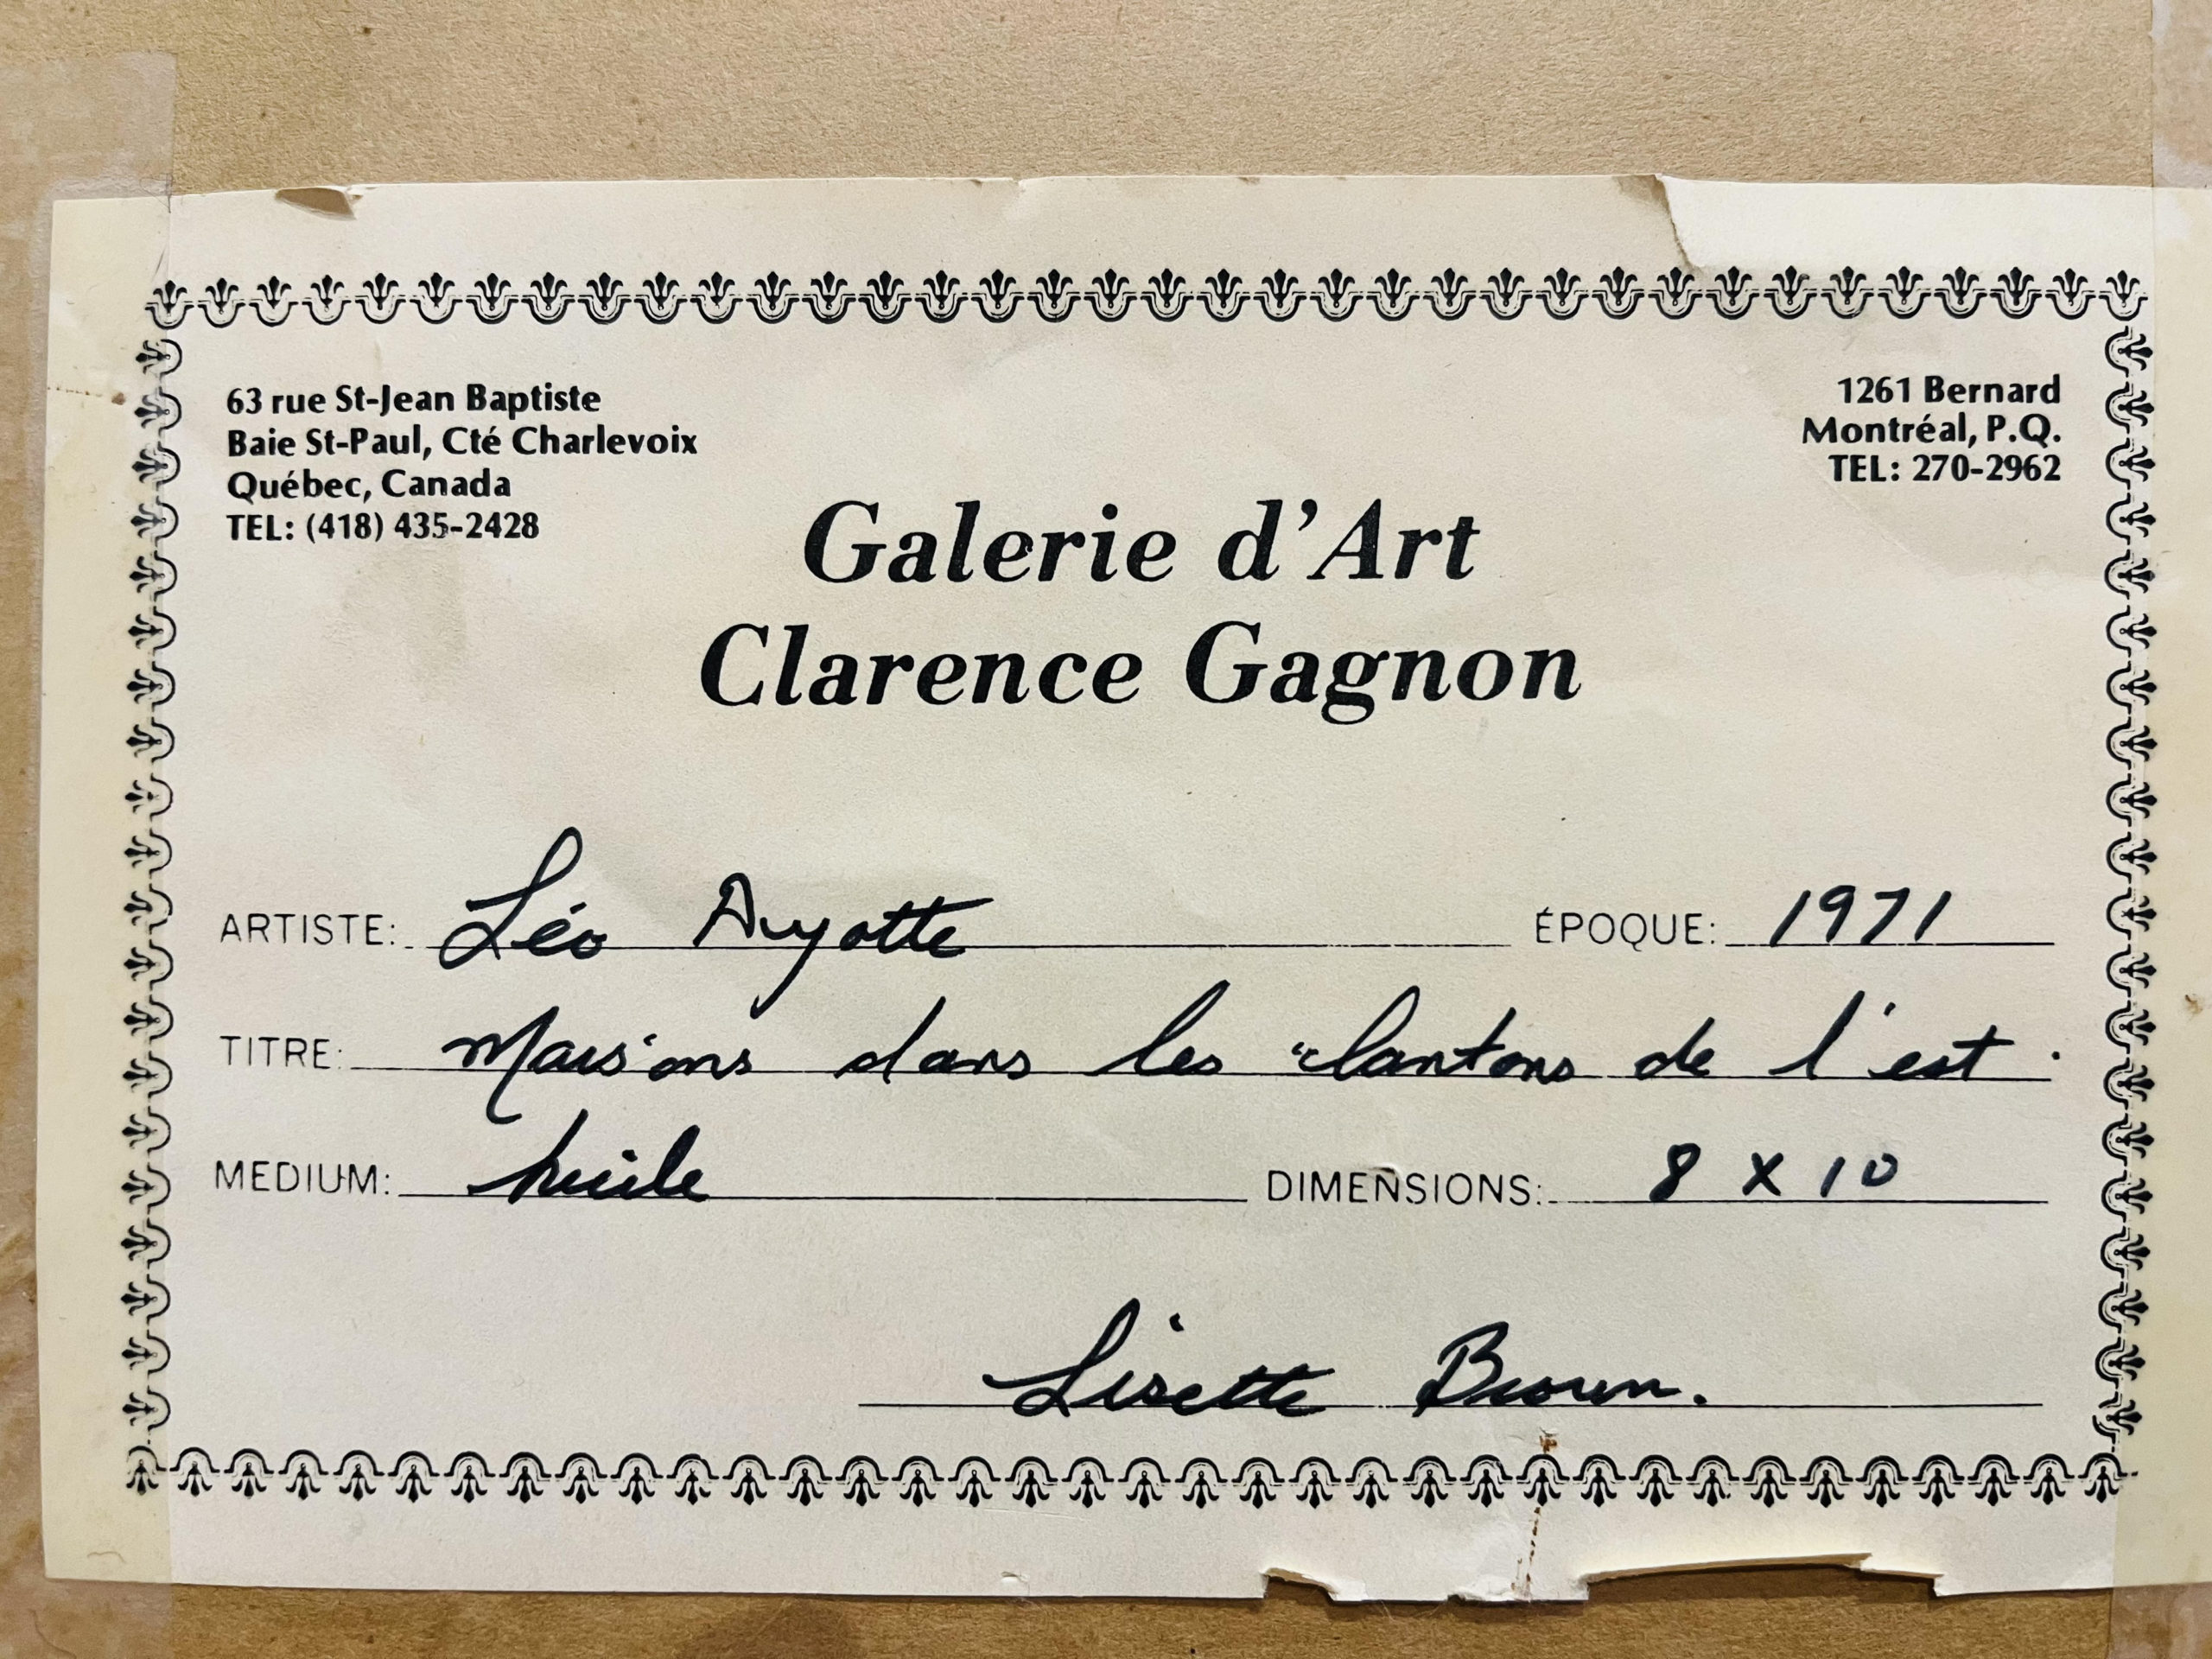 63 rue St-Jean Baptiste
Baie St-Paul, Cté Charlevoix
Québec, Canada
TEL: (418) 435-2428
1261 Bernard
Montréal, P.Q.
TEL: 270-2962
Galerie d'Art
Clarence Gagnon
ARTISTE: Léo Ayotte ÉPOQUE: 1971
TITRE: Maisons dans les cantons de l'est.
MEDIUM: huile DIMENSIONS: 8 X 10
Lisette Brown.